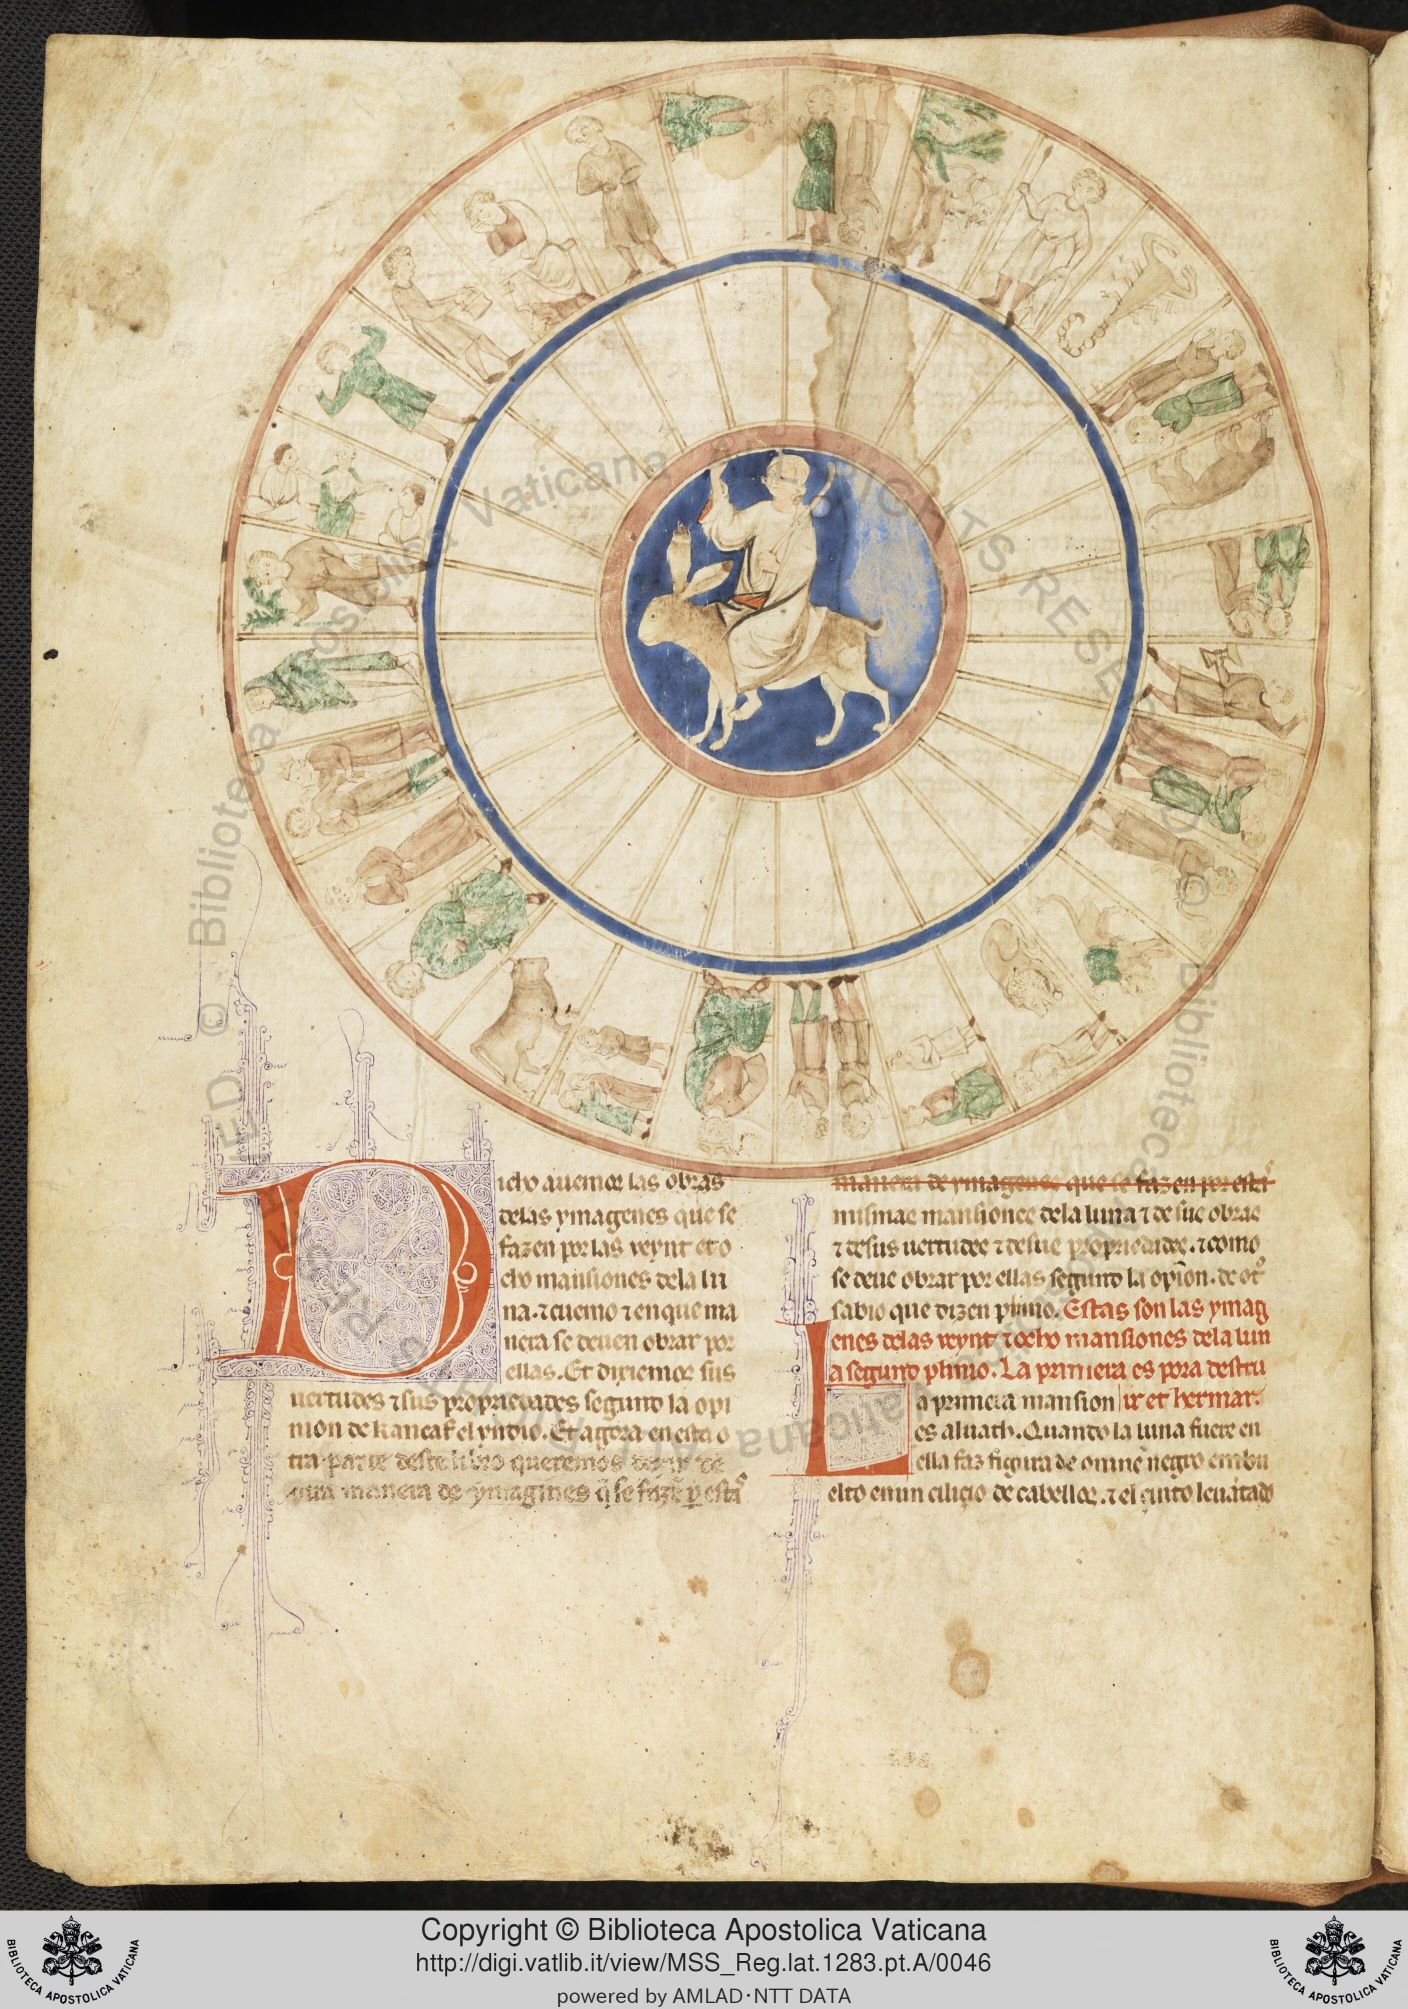 Dicho auemos las obras
delas ymagenes que se
fazen por las veynt et o
cho mansiones dela lu
na. ⁊ cuemo ⁊ en que ma
nera se deuen obrar por
ellas. Et dixiemos sus
uertudes ⁊ sus propriedades segund la opi
nion de kancaf el yndio. Et agora en esta o
tra parte deste libro queremos dezir de
otra manera de ymagines q̃ se fazẽ ꝑ esta
manera de ymagenes que se fazen por estas
mismas mansiones dela luna ⁊ de sus obras
⁊ de sus uertudes ⁊ de sus propriedades. ⁊ como
se deue obrar por ellas segund la opĩon. de otͦ
sabio que dizen plinio. Estas son las ymag
enes delas veynt ⁊ ocho mansiones dela lun
a segund plinio. La primera es pora destru
La primera mansion ir et hermar.
es alnath. Quando la luna fuere en
ella faz figura de omne negro embu
elto en un cilicio de cabellos. ⁊ el çinto leuãtado
© Biblioteca Apostolica Vaticana ALL RIGHTS RESERVED
Copyright © Biblioteca Apostolica Vaticana
http://digi.vatlib.it/view/MSS_Reg.lat.1283.pt.A/0046
powered by AMLAD·NTT DATA
BIBLIOTECA APOSTOLICA VATICANA
BIBLIOTECA APOSTOLICA VATICANA